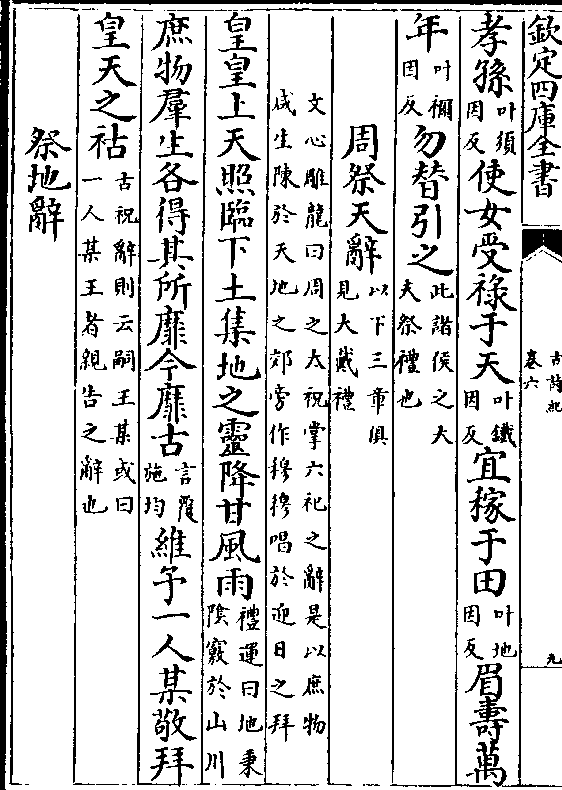 欽定四庫全書
古詩紀
卷六
九
孝孫叶須因反使女受祿于天叶鐵因反宜稼于田叶地因反眉壽萬
年叶禰因反勿替引之此諸侯之大夫祭禮也
周祭天辭以下三章俱見大戴禮
文心雕龍曰周之太祝掌六祀之辭是以庶物
咸生陳於天地之郊旁作穆穆唱於迎日之拜
皇皇上天照臨下土集地之靈降甘風雨禮運曰地秉陰竅於山川
庶物羣生各得其所靡今靡古言覆施均維予一人某敬拜
皇天之祜古祝辭則云嗣王某或曰一人某王者親告之辭也
祭地辭